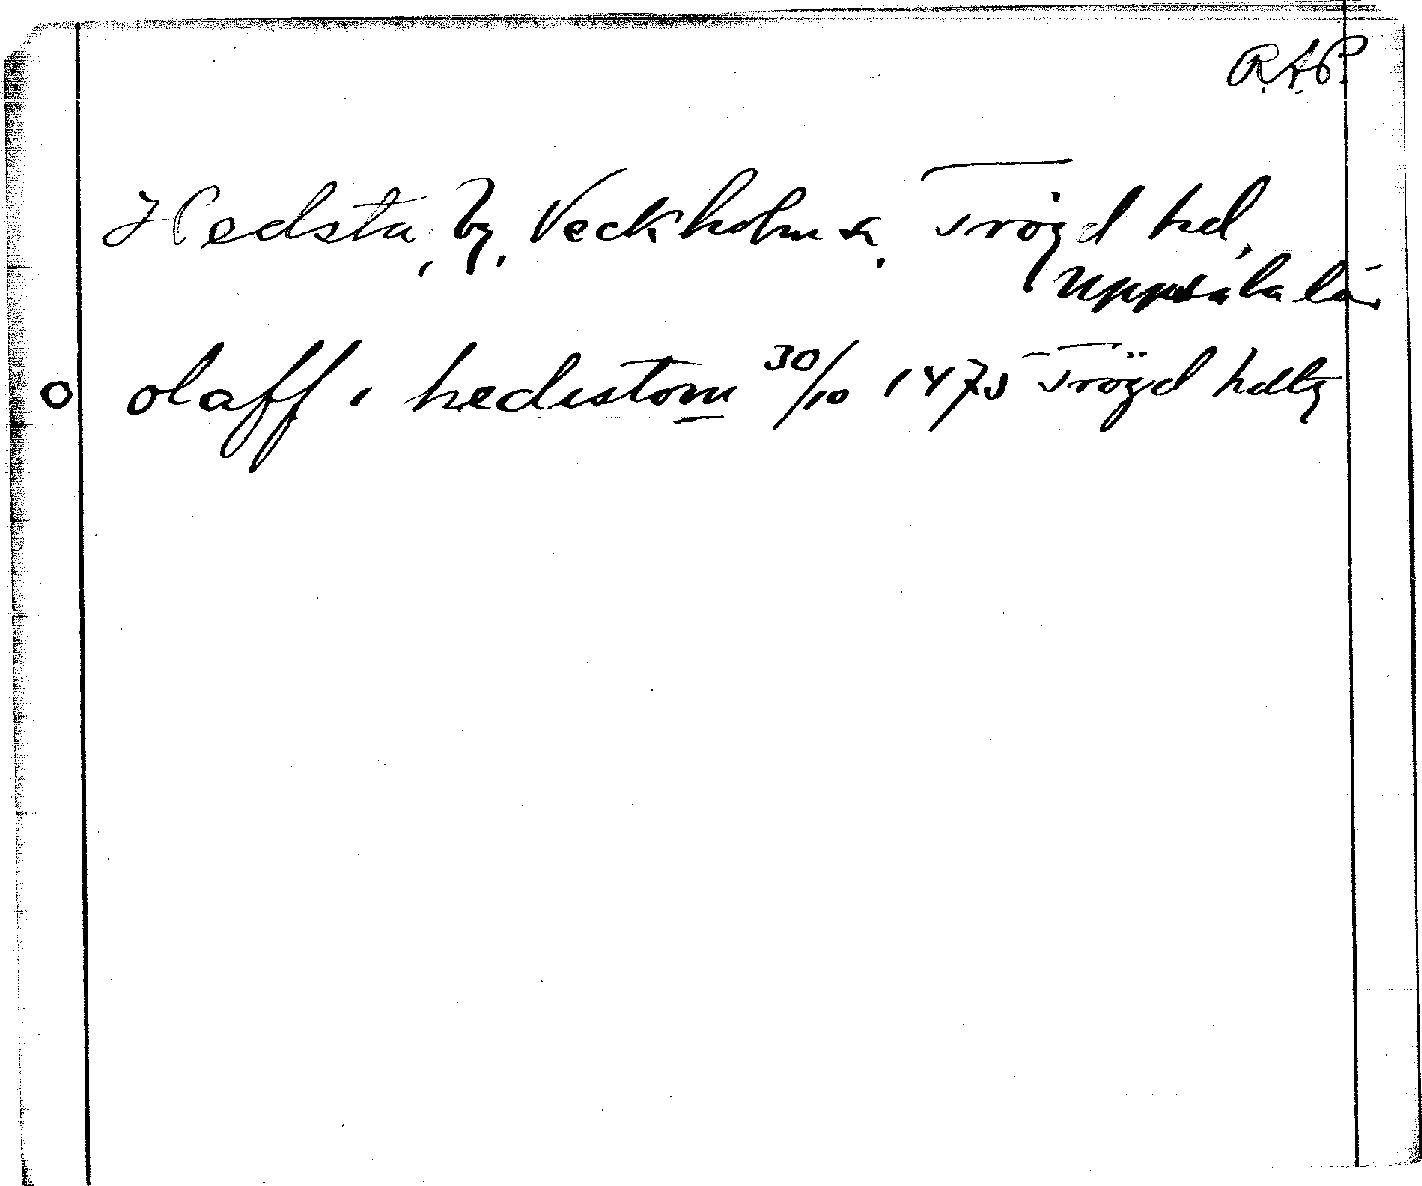 R.A.P.
Hedsta, by, Veckholms s. Trögd hd,
Uppsala län
olaff i hedistom 30/10 1475 Trögd hdtg